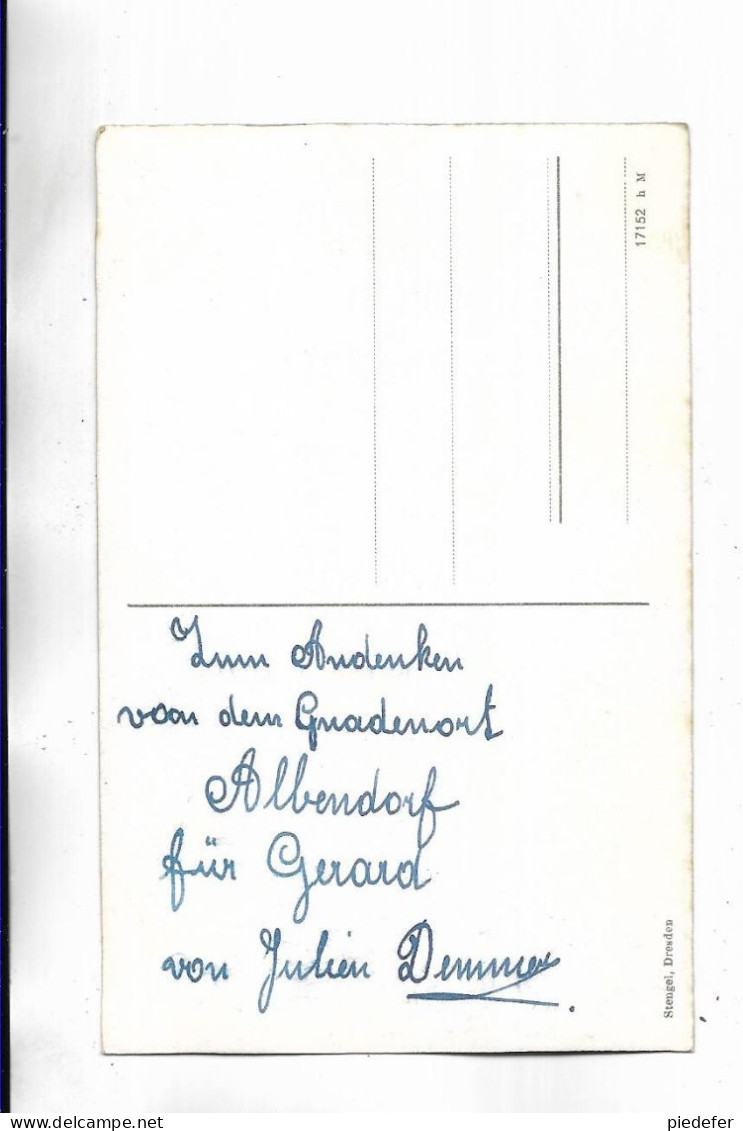 17152 h M
Zum Andenken
voon dem Gnadenort
Albendorf
für Gerard
von Julien Demmer
Stengel, Dresden
delcampe.net
piedefer